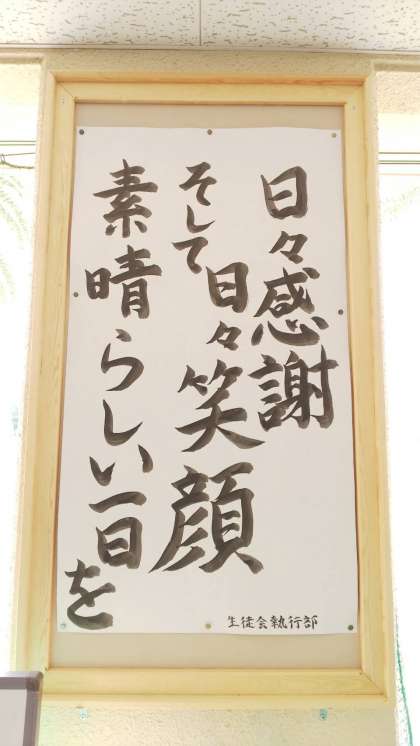 日々感謝
そして日々笑顔
素晴らしい一日を
生徒会執行部